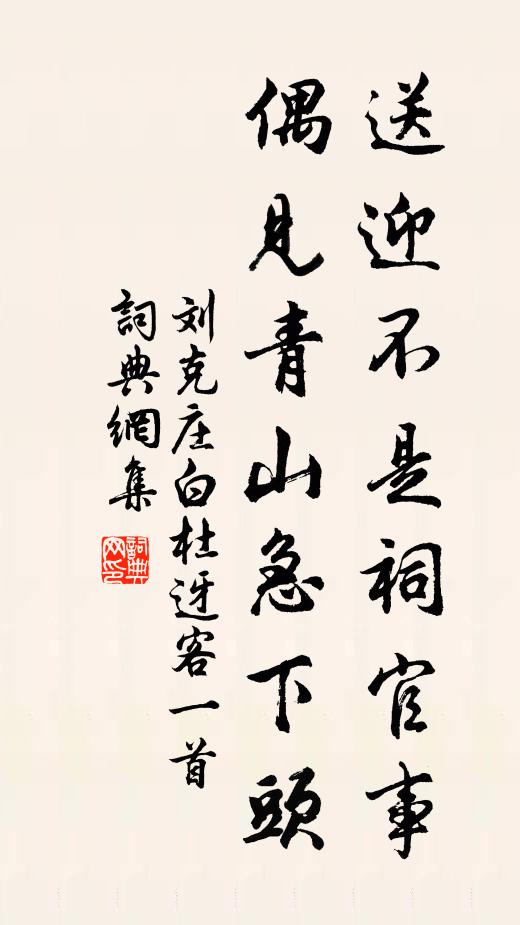 送迎不是祠官事
偶见青山急下頭
刘克庄白杜迓客一首
詞典網集
詞典網印